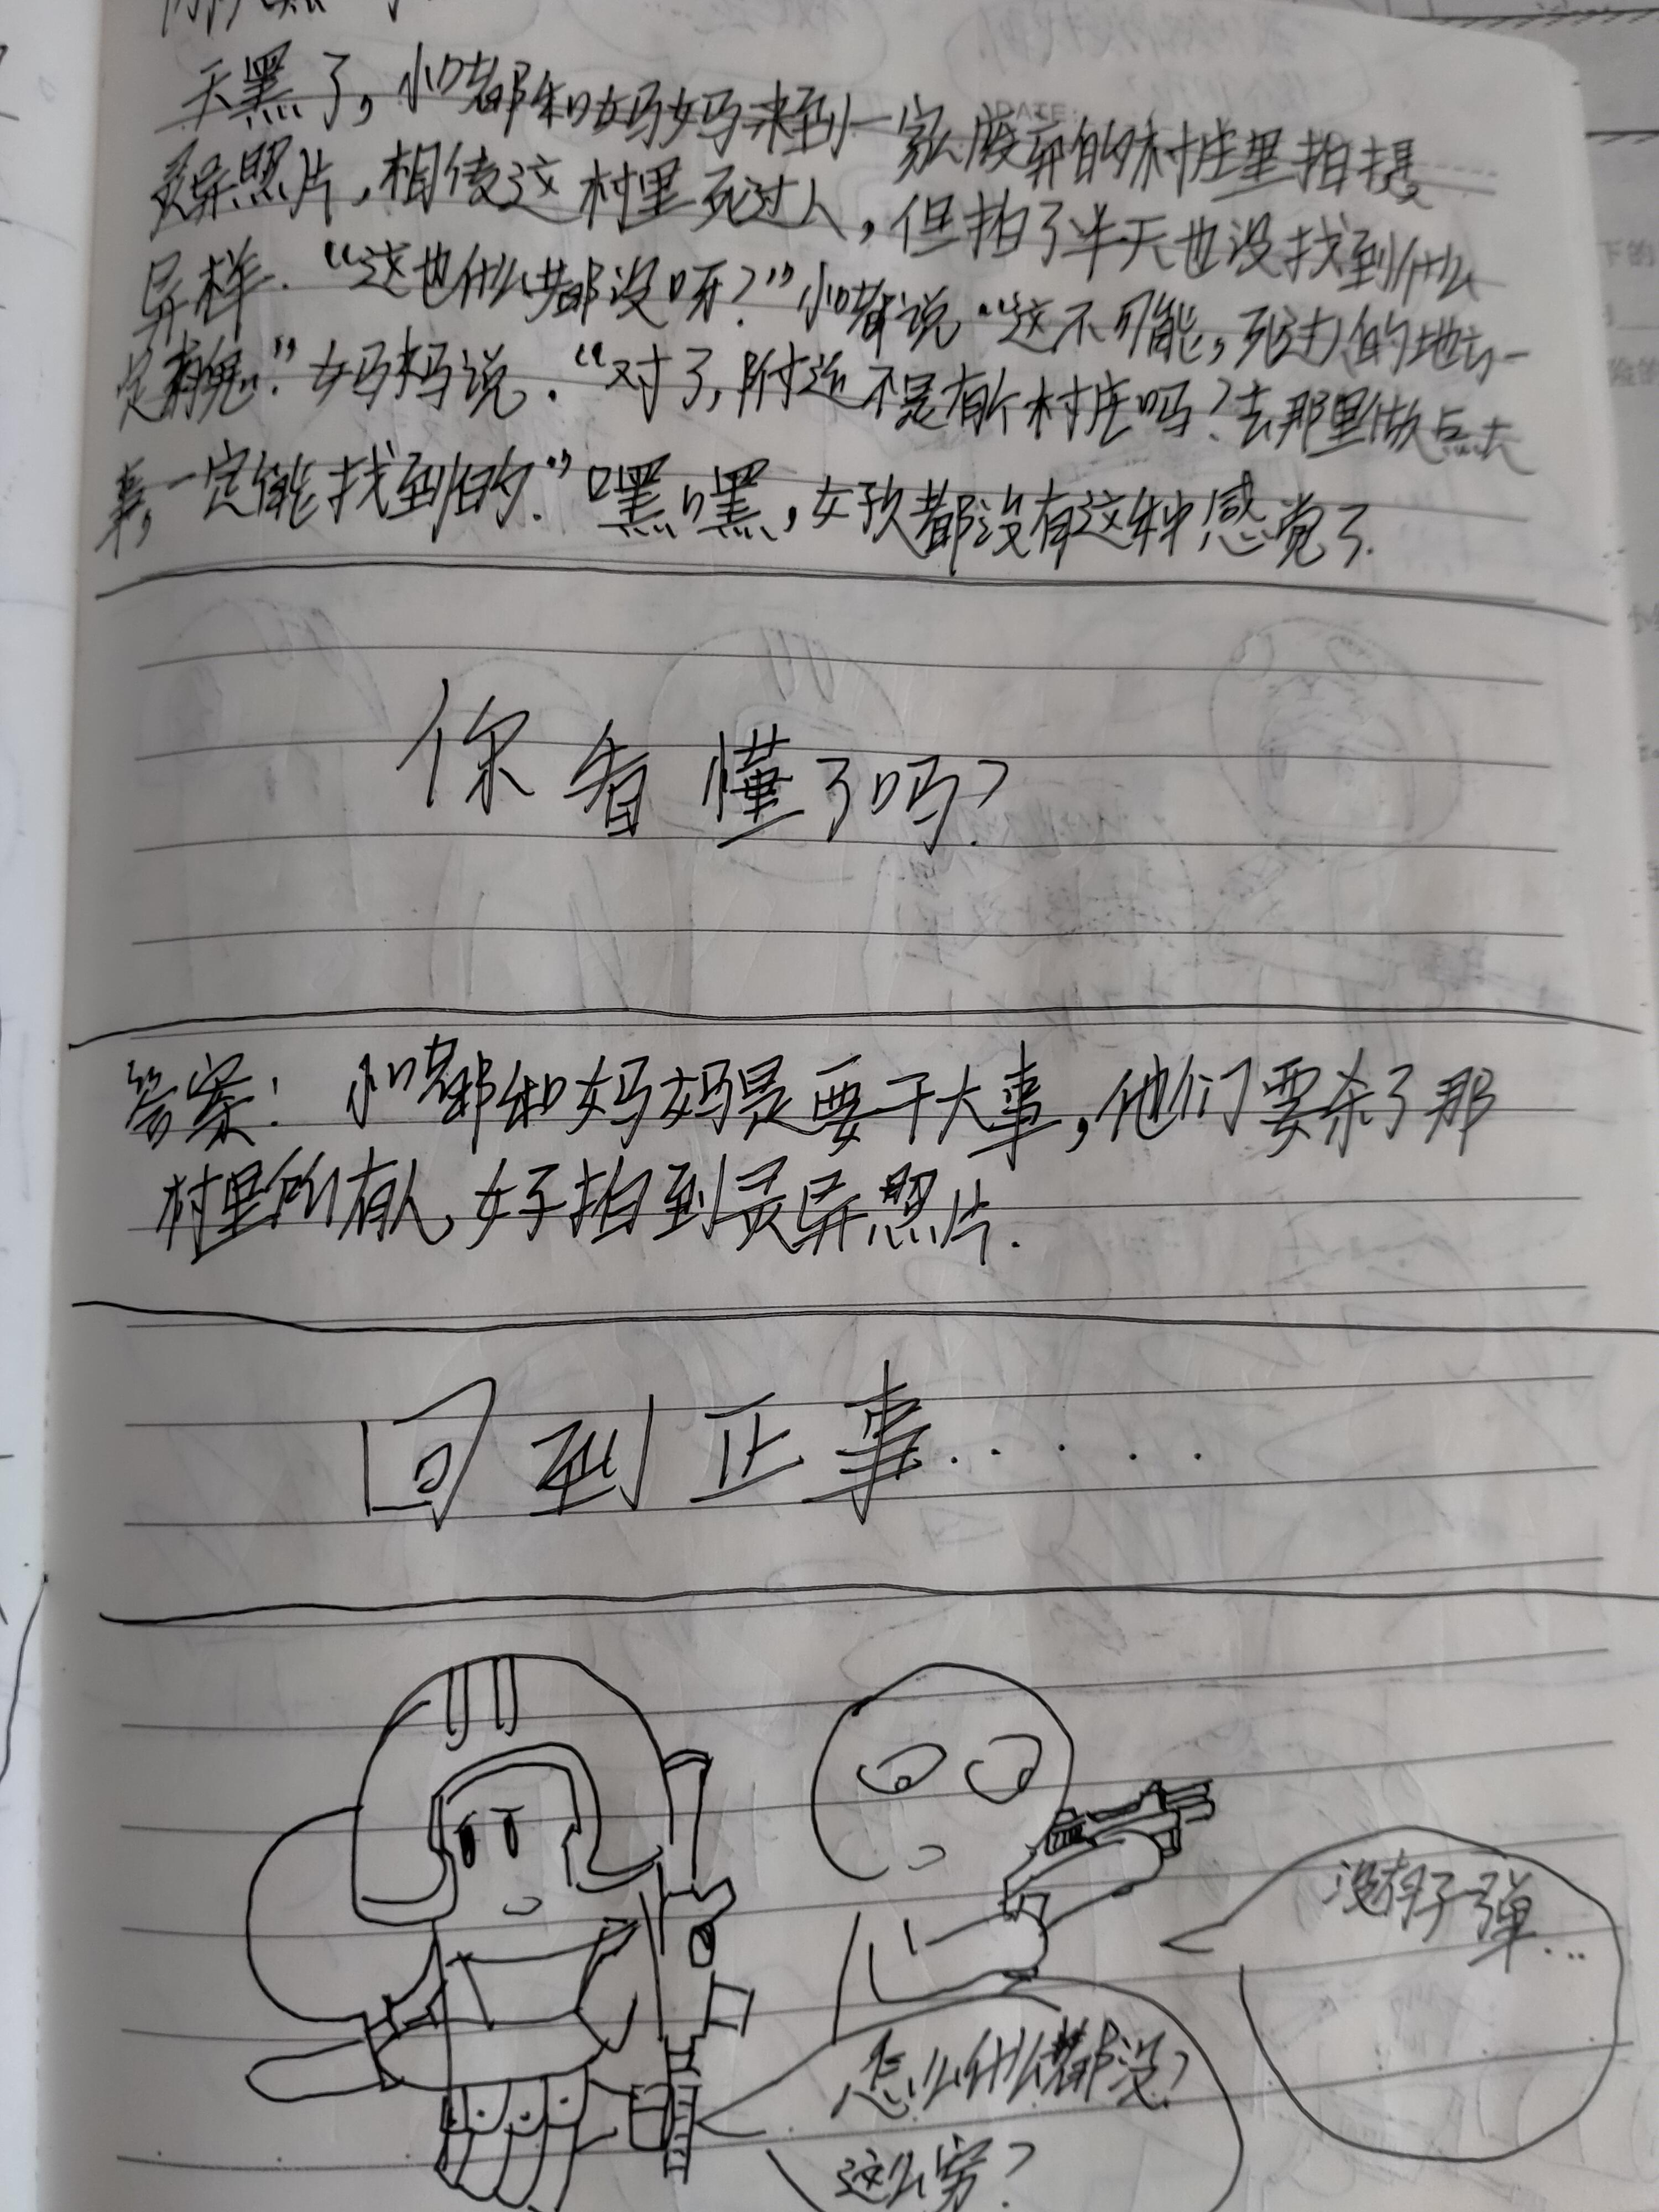 天黑了，小嘟和妈妈来到一家废弃的村庄里拍摄
灵异照片，相传这村里死过人，但拍了半天也没找到什么
异样.“这也什么都没呀？”小嘟说“这不可能，死过人的地方一
定有鬼.”妈妈说.“对了，附近不是有个村庄吗？去那里做点大
事，一定能找到的.”嘿嘿，女孩都没有这种感觉了.
你看懂了吗？
答案：小嘟和妈妈是要干大事，他们要杀了那
村里所有人，好拍到灵异照片.
回到正事......
没有子弹...
怎么什么都没？
这么穷？